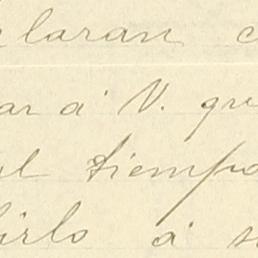 laran c
ar á V. que
el tiempo
irlo á s